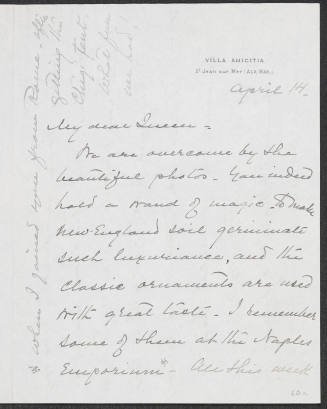 VILLA AMICITIA
St Jean sur Mer (Alp. Mar.)
April 14.
My dear Queen -
We are overcome by the
beautiful photos - You indeed
hold a wand of magic to make
New England soil germinate
such luxuriance, and the
Classic ornaments are used
with great taste - I remember
some of them at the Naples
Emporium* - All this week
* when I joined you from Rome - after
getting the